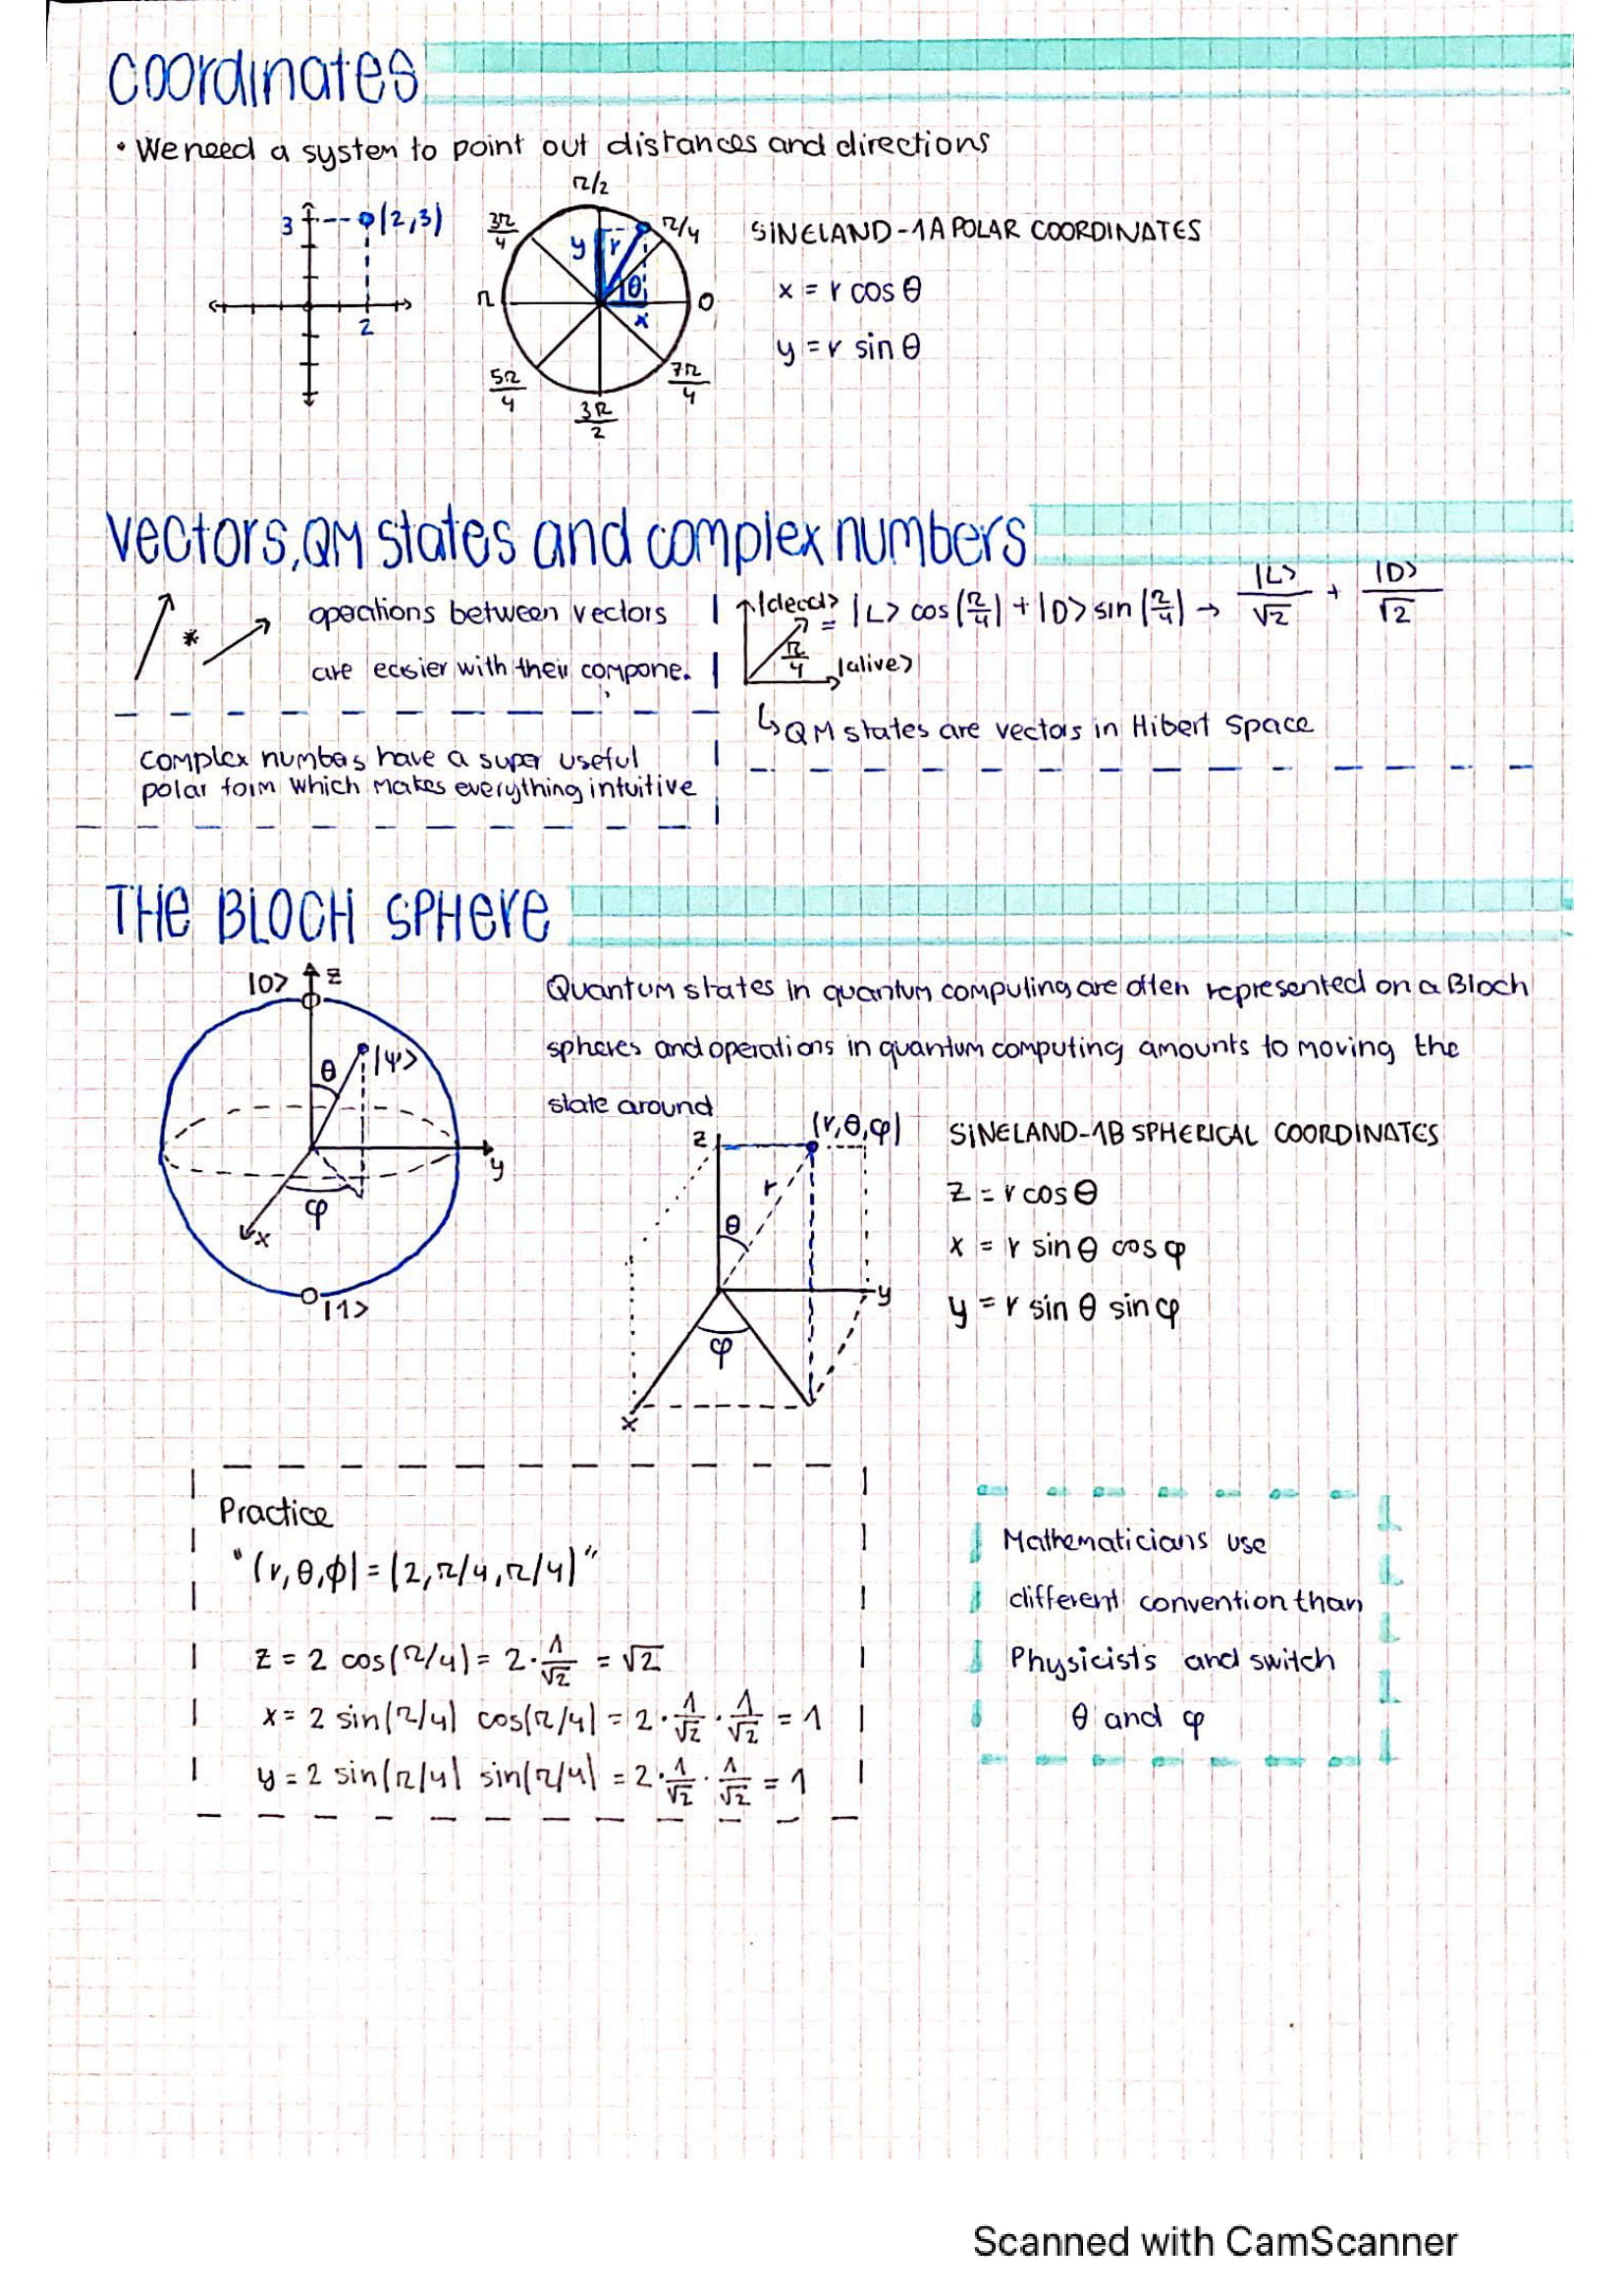 coordinates
• We need a system to point out distances and directions
3
(2,3)
2
π/2
3π/4
π/4
y
r
θ
π
0
x
5π/4
7π/4
3π/2
SINELAND-1A POLAR COORDINATES
x = r cos θ
y = r sin θ
vectors, QM states and complex numbers
*
operations between vectors
are easier with their compone.
|dead>
= |L> cos(π/4) + |D> sin(π/4) → |L>/√2 + |D>/√2
π/4
|alive>
↳ QM states are vectors in Hibert Space
complex numbers have a super useful
polar form which makes everything intuitive
THE BLOCH SPHERE
|0>
z
θ
|ψ>
y
φ
x
|1>
Quantum states in quantum computing are often represented on a Bloch
spheres and operations in quantum computing amounts to moving the
state around
z
(r,θ,φ)
r
θ
y
φ
x
SINELAND-1B SPHERICAL COORDINATES
z = r cos θ
x = r sin θ cos φ
y = r sin θ sin φ
Practice
"(r,θ,ϕ) = (2,π/4,π/4)"
z = 2 cos(π/4) = 2·1/√2 = √2
x = 2 sin(π/4) cos(π/4) = 2·1/√2·1/√2 = 1
y = 2 sin(π/4) sin(π/4) = 2·1/√2·1/√2 = 1
Mathematicians use
different convention than
Physicists and switch
θ and φ
Scanned with CamScanner